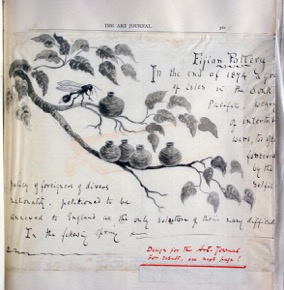 THE ART JOURNAL
Fijian Pottery
In the end of 1874 a group
of isles in the South
Pacific, weary
of internal
wars, too often
fomented
by the
selfish
policy of foreigners of divers
nationality, petitioned to be
annexed to England as the only solution of their many difficulties
In the following spring
Design for the Art Journal
For result, see next page!